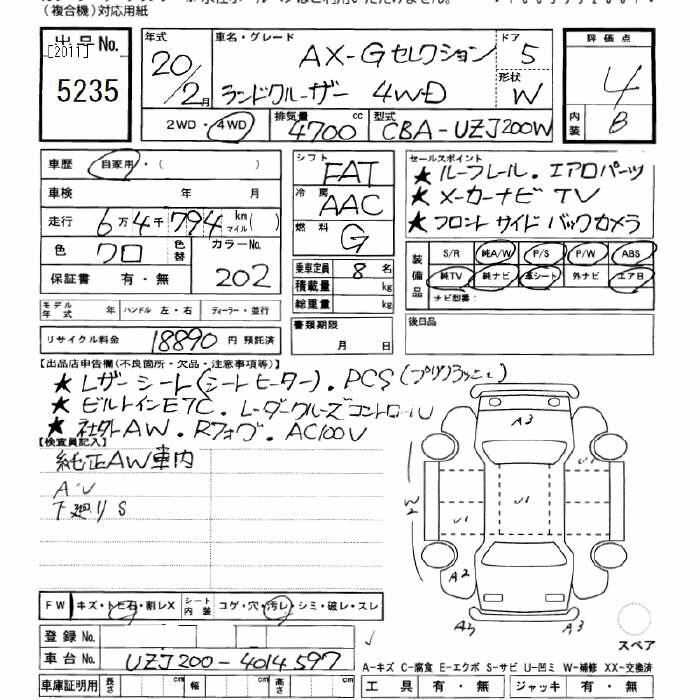 (複合機)対応用紙
出品No.
[2011]
5235
年式
20/2月
車名・グレード
AX-Gセレクション
ランドクルーザー 4WD
ドア
5
形状
W
2WD・4WD
排気量
4700 cc
型式
CBA-UZJ200W
評価点
4
内装
B
車歴 自家用・( )
車検 年 月
走行 6万4千794 km マイル( )
色 クロ 色替 カラーNo.
202
保証書 有・無
シフト FAT
冷房 AAC
燃料 G
乗車定員 8 名
積載量 kg
総重量 kg
セールスポイント
★ルーフレール.エアロパーツ
★メーカーナビ TV
★フロント サイド バックカメラ
装備品
S/R 純A/W P/S P/W ABS
純TV 純ナビ 革シート 外ナビ エアB
ナビ型番:
モデル年式 年 ハンドル 左・右 ディーラー・並行
書類期限
月 日
後日品
リサイクル料金 18890 円 預託済
【出品店申告欄(不良箇所・欠品・注意事項等)】
★レザーシート(シートヒーター).PCS(プリクラッシュ)
★ビルトインETC.レーダークルーズコントロール
★社外AW.Rフォグ.AC100V
【検査員記入】
純正AW車内
A・U
下廻りS
A3
U1
U1
A2
A3
A3
スペア
FW キズ・トビ石・割レX シート内装 コゲ・穴・汚レ・シミ・破レ・スレ
登録No.
車台No. UZJ200-4014597
A-キズ C-腐食 E-エクボ S-サビ U-凹ミ W-補修 XX-交換済
車庫証明用 長さ cm 幅 cm 高さ cm
工具 有・無 ジャッキ 有・無